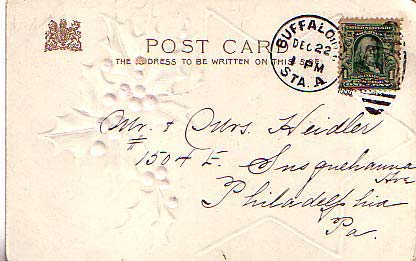 POST CARD
THE ADDRESS TO BE WRITTEN ON THIS SIDE
BUFFALO
DEC 22
PM
STA. A
Mr. & Mrs. Heidler
#1504 E. Susquehanna
Ave
Philadelphia
Pa.